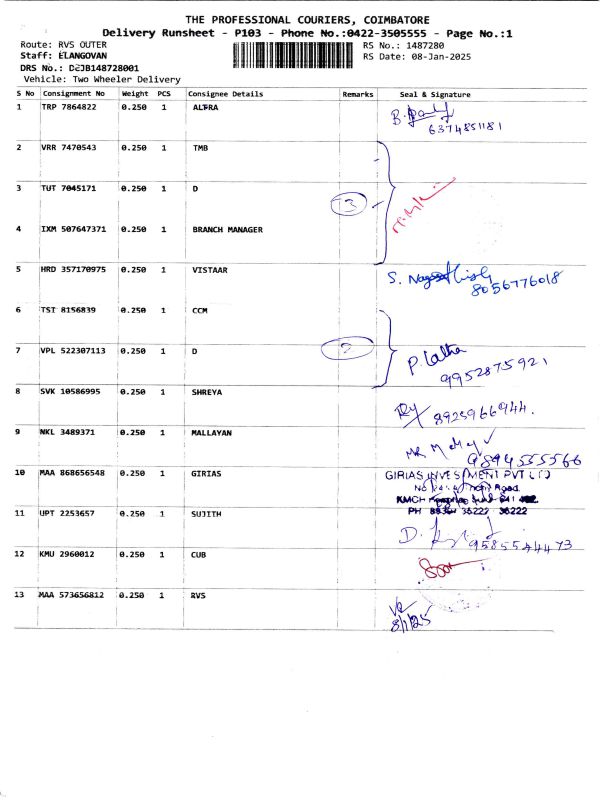 THE PROFESSIONAL COURIERS, COIMBATORE
Delivery Runsheet - P103 - Phone No.:0422-3505555 - Page No.:1
Route: RVS OUTER
RS No.: 1487280
Staff: ELANGOVAN
RS Date: 08-Jan-2025
DRS No.: DEJB148728001
Vehicle: Two Wheeler Delivery
S No Consignment No Weight PCS Consignee Details Remarks Seal & Signature
1 TRP 7864822 0.250 1 ALTRA
6374851181
2 VRR 7470543 0.250 1 TMB
3 TUT 7045171 0.250 1 D 3
4 IXM 507647371 0.250 1 BRANCH MANAGER
5 HRD 357170975 0.250 1 VISTAAR
8056776018
6 TST 8156839 0.250 1 CCM
7 VPL 522307113 0.250 1 D 2 P. Latha
9952875921
8 SVK 10586995 0.250 1 SHREYA
8925966944.
9 NKL 3489371 0.250 1 MALLAYAN
9894555566
10 MAA 868656548 0.250 1 GIRIAS GIRIAS INVESTMENT PVT LTD
Road
KMCH
11 UPT 2253657 0.250 1 SUJITH PH 36222 36222
9585544473
12 KMU 2960012 0.250 1 CUB
13 MAA 573656812 0.250 1 RVS
8/1/25